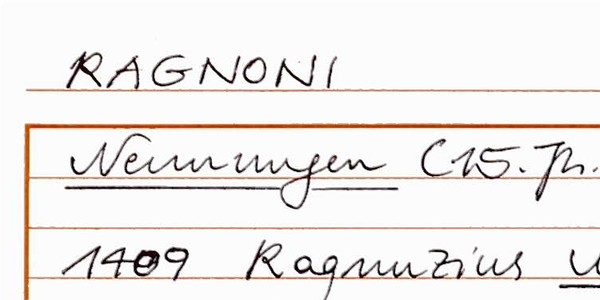 RAGNONI
Nennungen (15. Jh.
1409 Ragnuzius